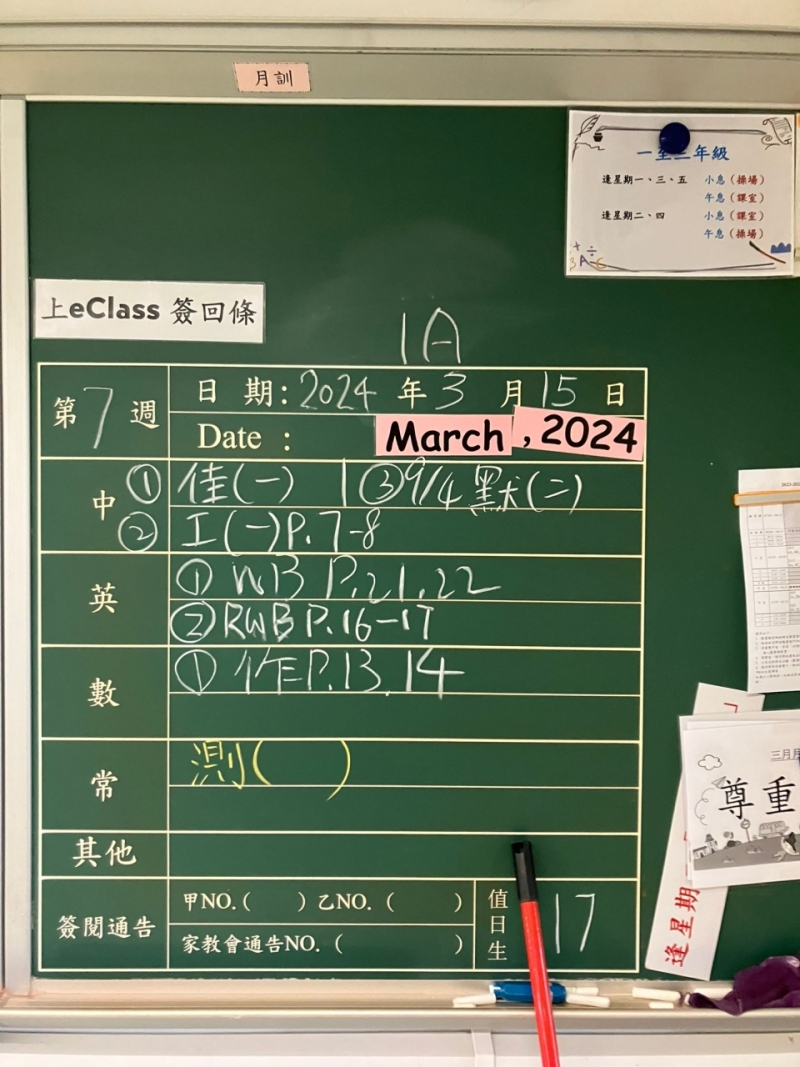 月訓
一至三年級
逢星期一、三、五 小息（操場）
午息（課室）
逢星期二、四 小息（課室）
午息（操場）
上eClass 簽回條
1A
第7週 日期：2024年3月15日
Date： March , 2024
中 ① 佳(一) | ③ 9/4 默(二)
② 工(一)P.7-8
英 ① WB P.21,22
② RWB P.16-17
數 ① 作P.13,14
常 測( )
其他
簽閱通告 甲NO.( ) 乙NO.( ) 值日生 17
家教會通告NO.( )
三月
尊重
逢星期